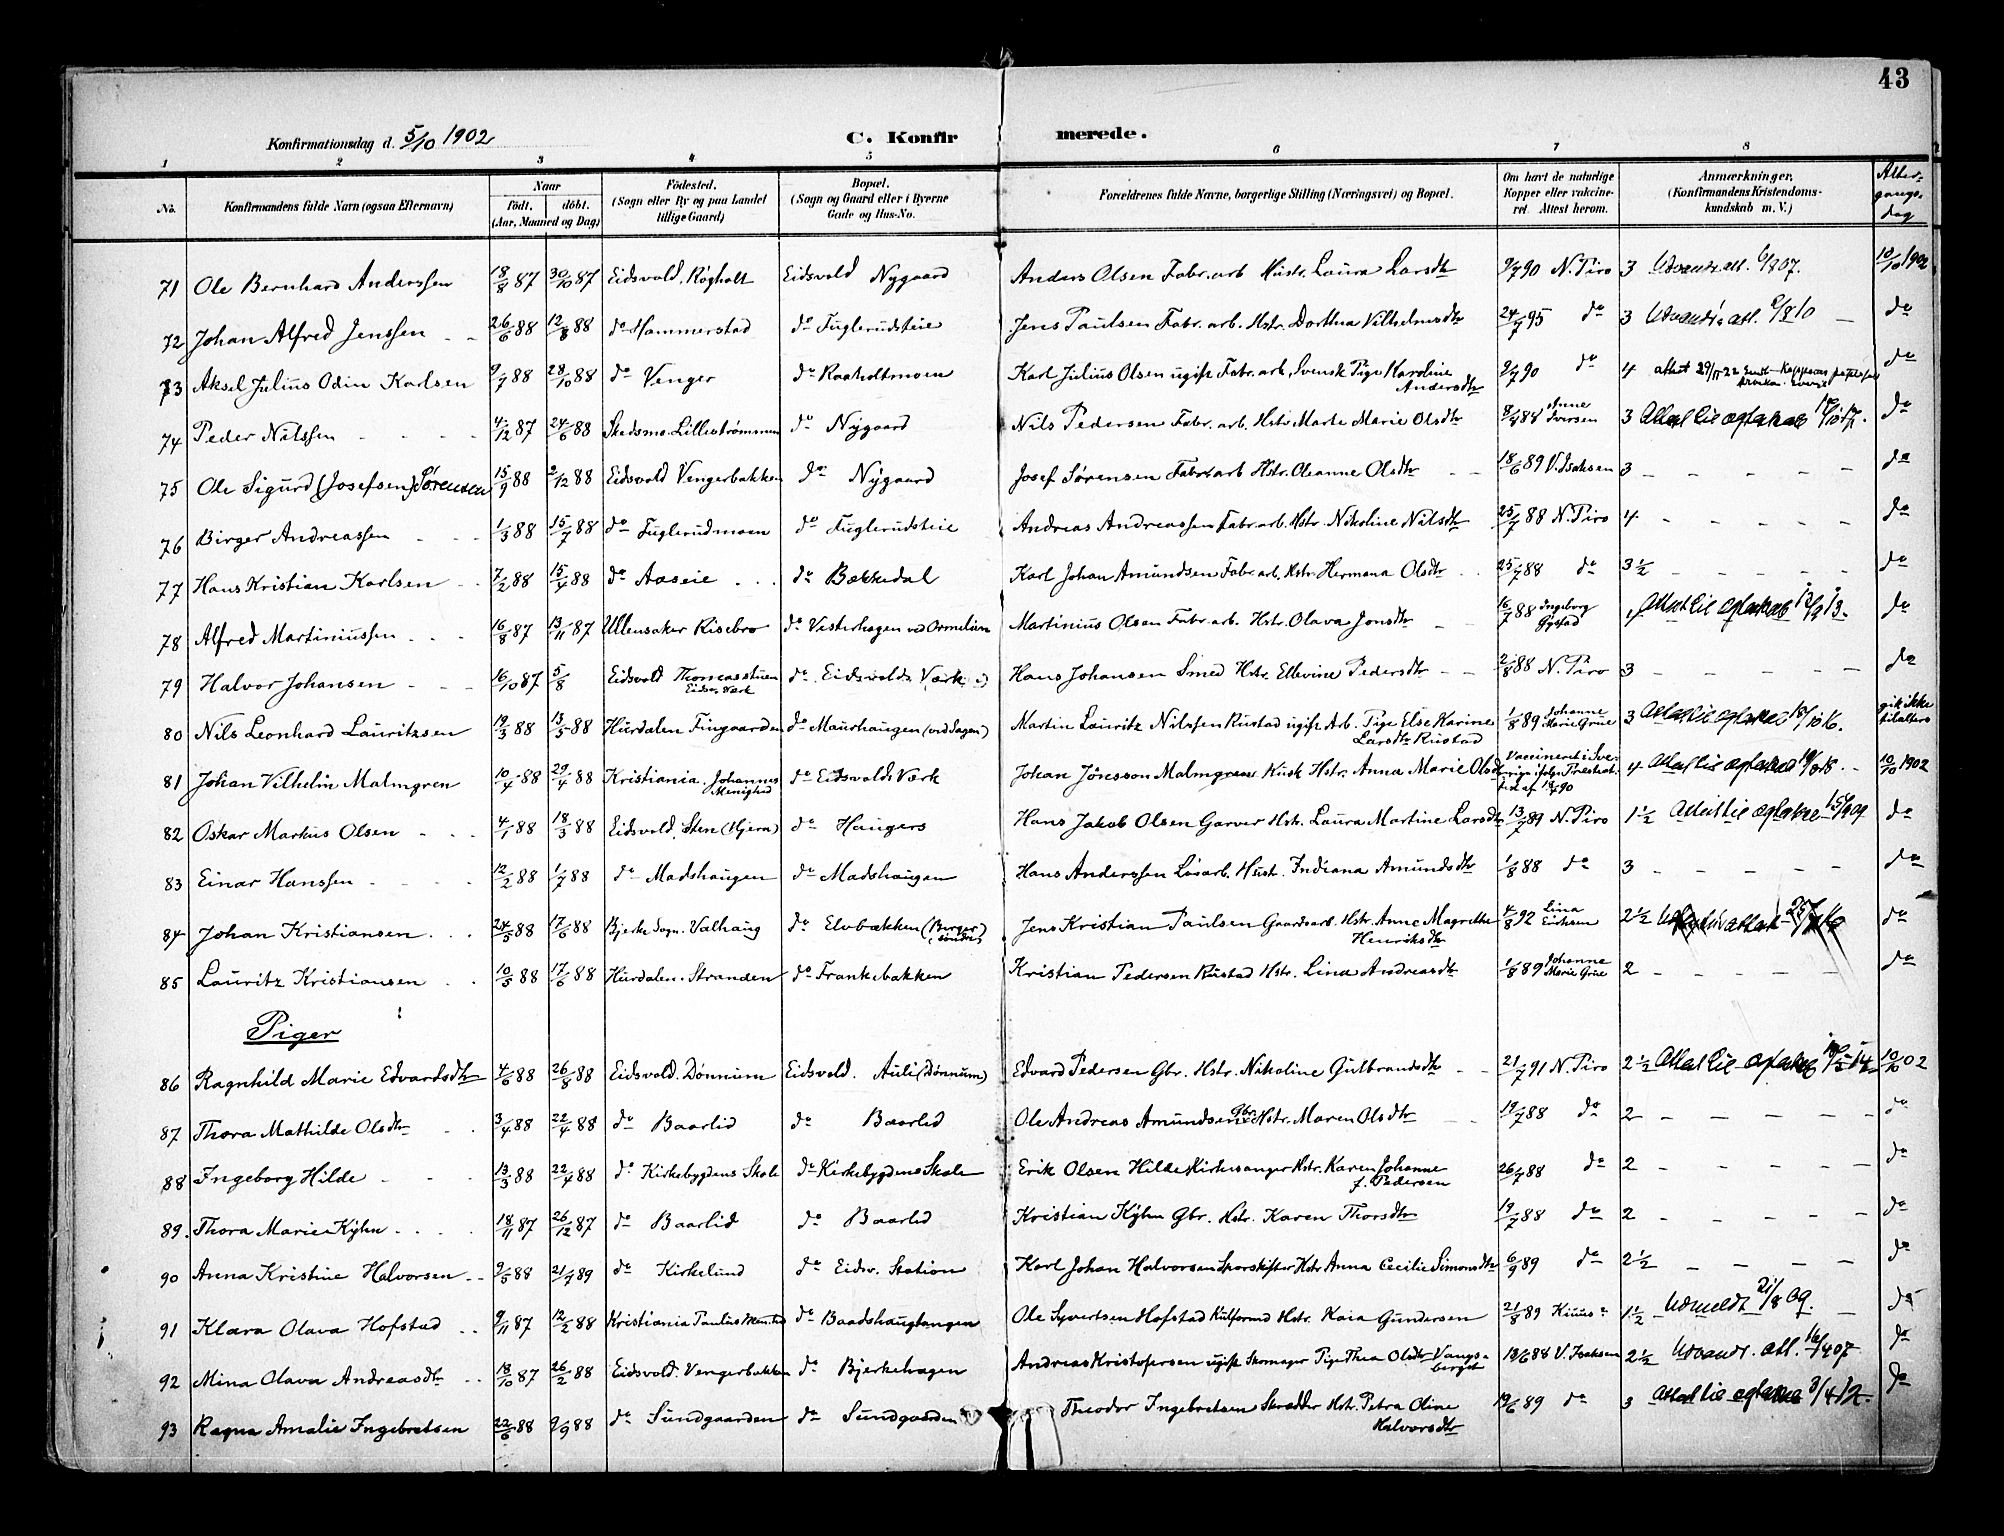 43
Konfirmationsdag d. 5/10 1902 C. Konfirmerede.
1 2 3 4 5 6 7 8
No. Konfirmandens fulde Navn (ogsaa Efternavn) Naar født. døbt. (Aar, Maaned og Dag) Fødested. (Sogn eller By og paa Landet tillige Gaard) Bopæl. (Sogn og Gaard eller i Byerne Gade og Hus-No. Forældrenes fulde Navne, borgerlige Stilling (Næringsvei) og Bopæl. Om havt de naturlige Kopper eller vaccineret. Attest herom. Anmærkninger. (Konfirmandens Kristendomskundskab m. V.) Altergangsdag
71 Ole Bernhard Anderssen 18/8 87 30/10 87 Eidsvold, Røgholt Eidsvold Nygaard Anders Olsen Fabr. arb Hustr. Laura Larsdtr 9/7 90 N. Piro 3 Udvandr. att. 6/8 07. 10/10 1902
72 Johan Alfred Jenssen 26/6 88 12/8 88 do Hammerstad do Fuglerudsteie Jens Paulsen Fabr. arb. Hstr. Dorthea Vilhelmsdtr 24/7 95 do 3 att. 6/8 10 do
73 Aksel Julius Odin Karlsen 9/7 88 28/10 88 do Venger do Raaholtmoen Karl Julius Olsen ugift Fabr. arb, Svensk Pige Karoline Andersdtr 9/7 90 do 4 attest 29/11 22 do
74 Peder Nilssen 4/12 87 24/6 88 Skedsmo Lillestrømmen do Nygaard Nils Pedersen Fabr. arb. Hstr. Marte Marie Olsdtr 8/9 88 Anne Iversen 3 do
75 Ole Sigurd (Josefsen) Sørensen 15/9 88 2/12 88 Eidsvold Vengerbakken do Nygaard Josef Sørensen Fabrikarb Hstr. Oleanne Olsdtr 18/6 89 V. Isaksen 3 do
76 Birger Andreassen 1/3 88 15/7 88 do Fuglerudmoen do Fuglerudsteie Andreas Andreassen Fabr. arb. Hstr. Nikoline Nilsdtr 25/7 88 N. Piro 4 do
77 Hans Kristian Karlsen 7/2 88 15/4 88 do Aaseie do Bækkedal Karl Johan Amundsen Fabr. arb. Hstr. Hermana Olsdtr 25/7 88 do 3½ do
78 Alfred Martiniussen 16/8 87 13/11 87 Ullensaker Risebro do Vesterhagen ved Ormelien Martinius Olsen Fabr. arb. Hstr. Olava Jonsdtr 16/7 88 Ingeborg Gystad do
79 Halvor Johansen 16/10 87 5/8 Eidsvold Thomasstuen Eidsv. Værk do Eidsvolds Værk Hans Johansen Smed Hstr. Ellevine Pedersdtr 2/8 88 N. Piro 3 do
80 Nils Leonhard Lauritzsen 19/3 88 13/5 88 Hurdalen Fingaarden do Maurhaugen (ved Sagen) Martin Lauritz Nilssen Rustad ugift Arb. Pige Else Karine Larsdtr Rustad 1/8 89 Johanne Marie Grue 3 gik ikke tilalters
81 Johan Vilhelm Malmgren 10/4 88 29/4 88 Kristiania. Johannes Menighed do Eidsvolds Værk Johan Jönsson Malmgreen Kusk Hstr. Anna Marie Olsdtr Vaccineret i Sverige ifølge Presteattest 4 10/10 1902
82 Oskar Markus Olsen 4/1 88 18/3 88 Eidsvold. Sten (Hjera) do Haugers Hans Jakob Olsen Garver Hstr. Laura Martine Larsdtr 13/7 89 N. Piro 1½ do
83 Einar Hanssen 12/2 88 1/7 88 do Madshaugen do Madshaugen Hans Anderssen Løsarb. Hustr. Indiana Amundsdtr 1/8 88 do 3 do
84 Johan Kristiansen 24/5 88 17/6 88 Bjerke Sogn. Valhaug do Elvbakken (Burger søndre) Jens Kristian Paulsen Gaardsarb. Hstr. Anne Magrethe Henriksdtr 4/8 92 Lina Eriksen 2½ do
85 Lauritz Kristiansen 10/5 88 17/6 88 Hurdalen. Stranden do Frankebakken Kristian Pedersen Rustad Hstr. Lina Andreasdtr 1/8 89 Johanne Marie Grue 2 do
Piger
86 Ragnhild Marie Edvardsdtr 4/6 88 26/8 88 Eidsvold. Dønnum Eidsvold. Auli (Dønnum) Edvard Pedersen Gbr. Hstr. Nikoline Gulbrandsdtr 21/7 91 N. Piro 2½ 10/10 02
87 Thora Mathilde Olsdtr 3/4 88 22/4 88 do Baarlid do Baarlid Ole Andreas Amundsen Gbr. Hstr. Maren Olsdtr 19/7 88 do 2 do
88 Ingeborg Hilde 13/3 88 22/4 88 do Kirkebygdens Skole do Kirkebygdens Skole Erik Olsen Hilde Kirkesanger Hstr. Karen Johanne f. Pedersen 26/7 88 do 2 do
89. Thora Marie Kyhn 18/11 87 26/12 87 do Baarlid do Baarlid Kristian Kyhn Gbr. Hstr. Karen Thorsdtr 19/7 88 do 2 do
90 Anna Kristine Halvorsen 9/5 88 21/7 89 do Kirkelund do Eidsv. Station Karl Johan Halvorsen Sporskifter Hstr Anna Cecilie Simonsdtr 6/9 89 do 2½ do
91 Klara Olava Hofstad 9/11 87 12/2 88 Kristiania Paulus Menighed do Baadshaugtangen Ole Syvertsen Hofstad Hstr. Kaia Gundersen 21/8 89 1½ Udmeldt 21/8 09. do
92 Mina Olava Andreasdtr 18/10 87 26/2 88 Eidsvold. Vengerbakken do Bjerkehagen Andreas Kristofersen ugift Skomager Pige Thea Olsdtr Vangsberget 18/6 88 V. Isaksen 2½ Udvandr. att. 16/4 07 do
93 Ragna Amalie Ingebretsen 22/6 88 9/9 88 do Sundgaarden do Sundgaarden Theodor Ingebretsen Skrædder Hstr. Petra Oline Halvorsdtr 19/6 89 do 3 3/4 12. do